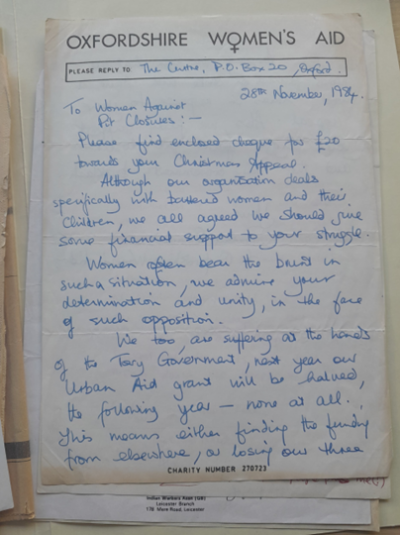 OXFORDSHIRE WOMEN'S AID
PLEASE REPLY TO: The Centre, P.O. Box 20, Oxford.
28th November, 1984.
To Women Against
Pit Closures:-
Please find enclosed cheque for £20
towards your Christmas Appeal.
Although our organisation deals
specifically with battered women and their
children, we all agreed we should give
some financial support to your struggle.
Women often bear the brunt in
such a situation, we admire your
determination and unity, in the face
of such opposition.
We too, are suffering at the hands
of the Tory Government, next year our
Urban Aid grant will be halved,
the following year — none at all.
This means either finding the funding
from elsewhere, or losing our three
CHARITY NUMBER 270723
Indian Workers Assn (GB)
Leicester Branch
Road, Leicester